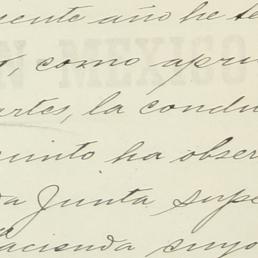 sente año he te
, como apr
artes, la condu
uinto ha obser
da Junta supe
Hacienda cuyo